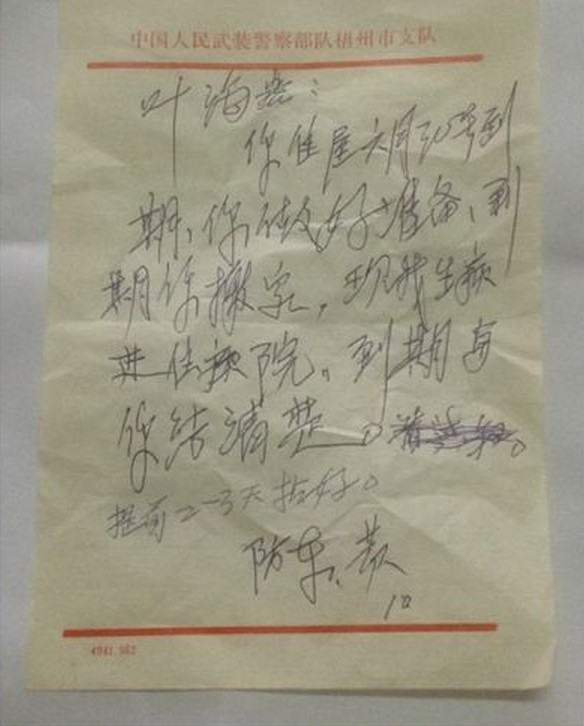 中国人民武装警察部队梧州市支队
叶海
你住屋六月30号到
期、你做好准备、到
期你搬家，现我生病
进住 院。到期与
你结清楚。
提前2-3天 好。
防东
10
4041.962